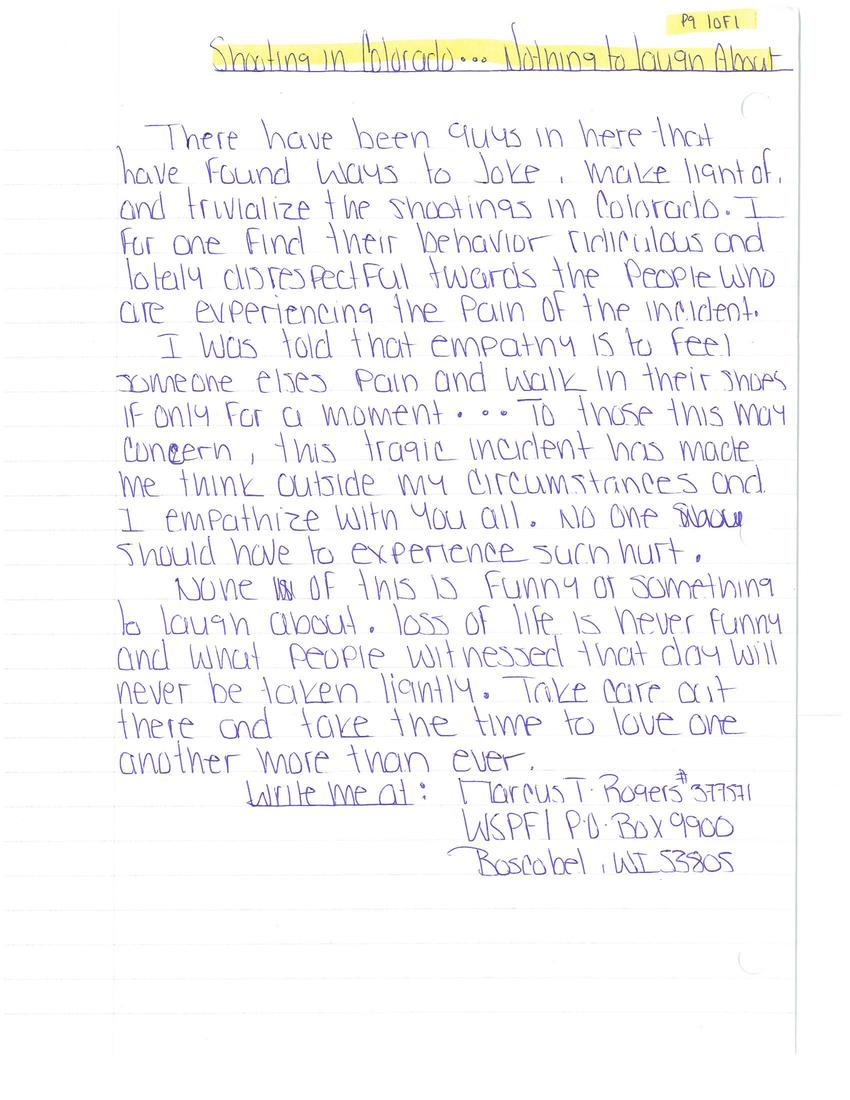 Pg 1 OF 1
Shooting in Colorado... Nothing to laugh About
There have been guys in here that
have found ways to Joke, make light of,
and trivialize the shootings in Colorado. I
for one find their behavior ridiculous and
totally disrespectful twards the People who
are experiencing the Pain of the incident.
I was told that empathy is to feel
someone elses Pain and walk in their shoes
if only for a moment.... To those this may
concern, this tragic incident has made
me think outside my circumstances and
I empathize with you all. No one
should have to experience such hurt.
None of this is funny or something
to laugh about. loss of life is never funny
and what people witnessed that day will
never be taken lightly. Take care out
there and take the time to love one
another more than ever.
Write me at: Marcus T. Rogers #377571
WSPF | P.O. Box 9900
Boscobel, WI 53805